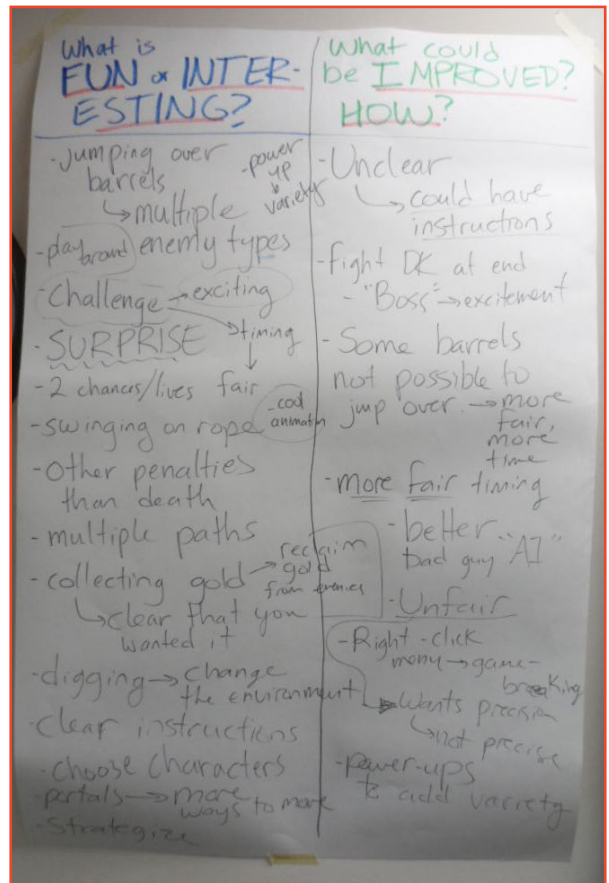 What is
FUN or INTER-
ESTING?
-jumping over
barrels
↳ multiple
enemy types
-power
up
↳
variety
-play
around
-Challenge → exciting
→ timing
↓
fair
-SURPRISE
-2 chances/lives
-swinging on rope
-cool
animatn
-Other penalties
than death
-multiple paths
-collecting gold → reclaim
gold
from enemies
↳ clear that you
wanted it
-digging → change
the environment
-clear instructions
-choose characters
-portals → more
ways to move
-strategize
What could
be IMPROVED?
HOW?
-Unclear
↳ could have
instructions
-fight DK at end
-"Boss" → excitement
-Some barrels
not possible to
jmp over. → more
fair,
more
time
-more fair timing
-better
bad guy "AI"
-Unfair
-Right-click
menu → game-
breaking
→ Wants precision
↳ not precise
-power-ups
to add variety